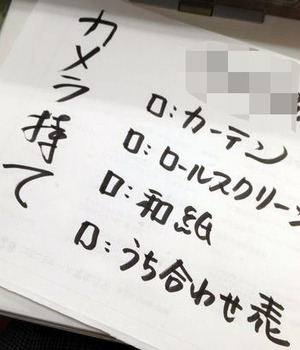 カメラ持て
□:カーテン
□:ロールスクリーン
□:和紙
□:うち合わせ表